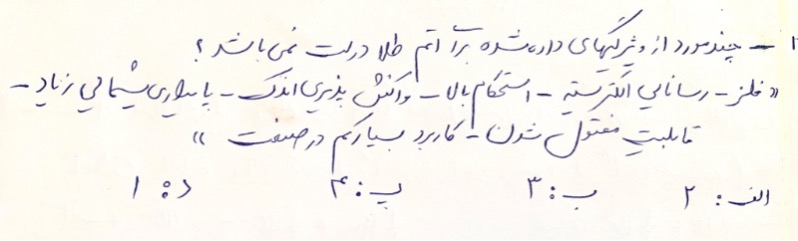 ۱ - چند مورد از ویژگیهای داده شده برا اتم طلا درست نمی باشد ؟
« فلز - رسانایی الکتریسیته - استحکام بالا - واکنش پذیری اندک - پایداری شیمیایی زیاد -
قابلیت مفتول شدن - کاربرد بسیار کم در صنعت »
الف : ۲ ب : ۳ پ : ۴ د : ۱